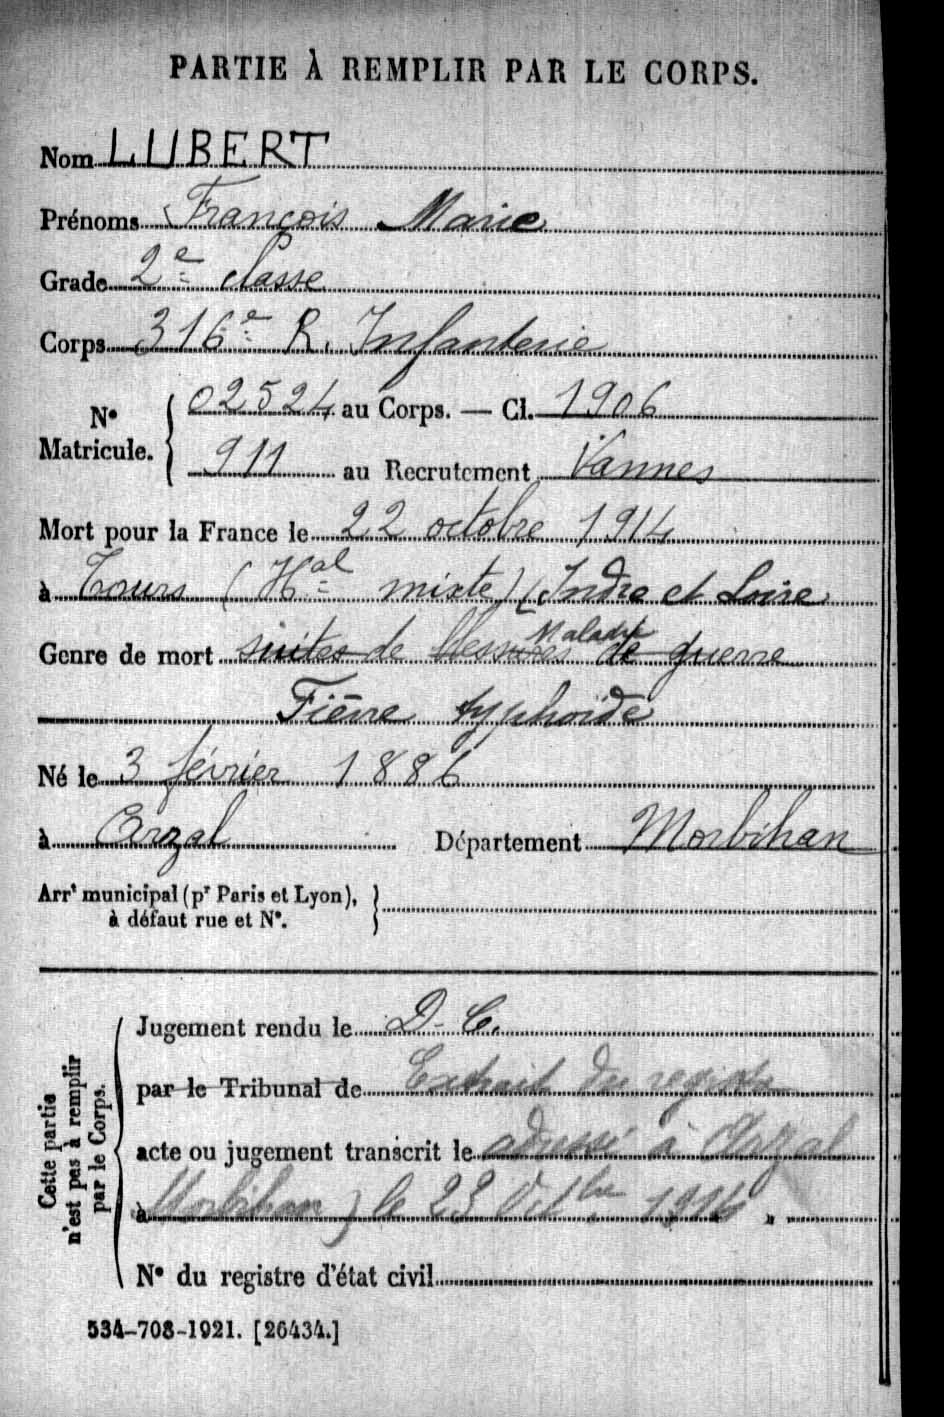 PARTIE À REMPLIR PAR LE CORPS.
Nom LUBERT
Prénoms François Marie
Grade 2e classe
Corps 316e R. Infanterie
N° Matricule. { 02524 au Corps. — Cl. 1906
911 au Recrutement Vannes
Mort pour la France le 22 octobre 1914
à Tours (Hal mixte) (Indre et Loire
Maladie
Genre de mort suites de blessures de guerre
Fièvre typhoïde
Né le 3 février 1886
à Arzal Département Morbihan
Arrt municipal (pr Paris et Lyon), }
à défaut rue et N°.
Cette partie
n'est pas à remplir
par le Corps.
Jugement rendu le D. C.
par le Tribunal de Extrait du registre
acte ou jugement transcrit le adressé à Arzal
à Morbihan) le 23 Octbre 1914.
N° du registre d'état civil
534-708-1921. [26434.]